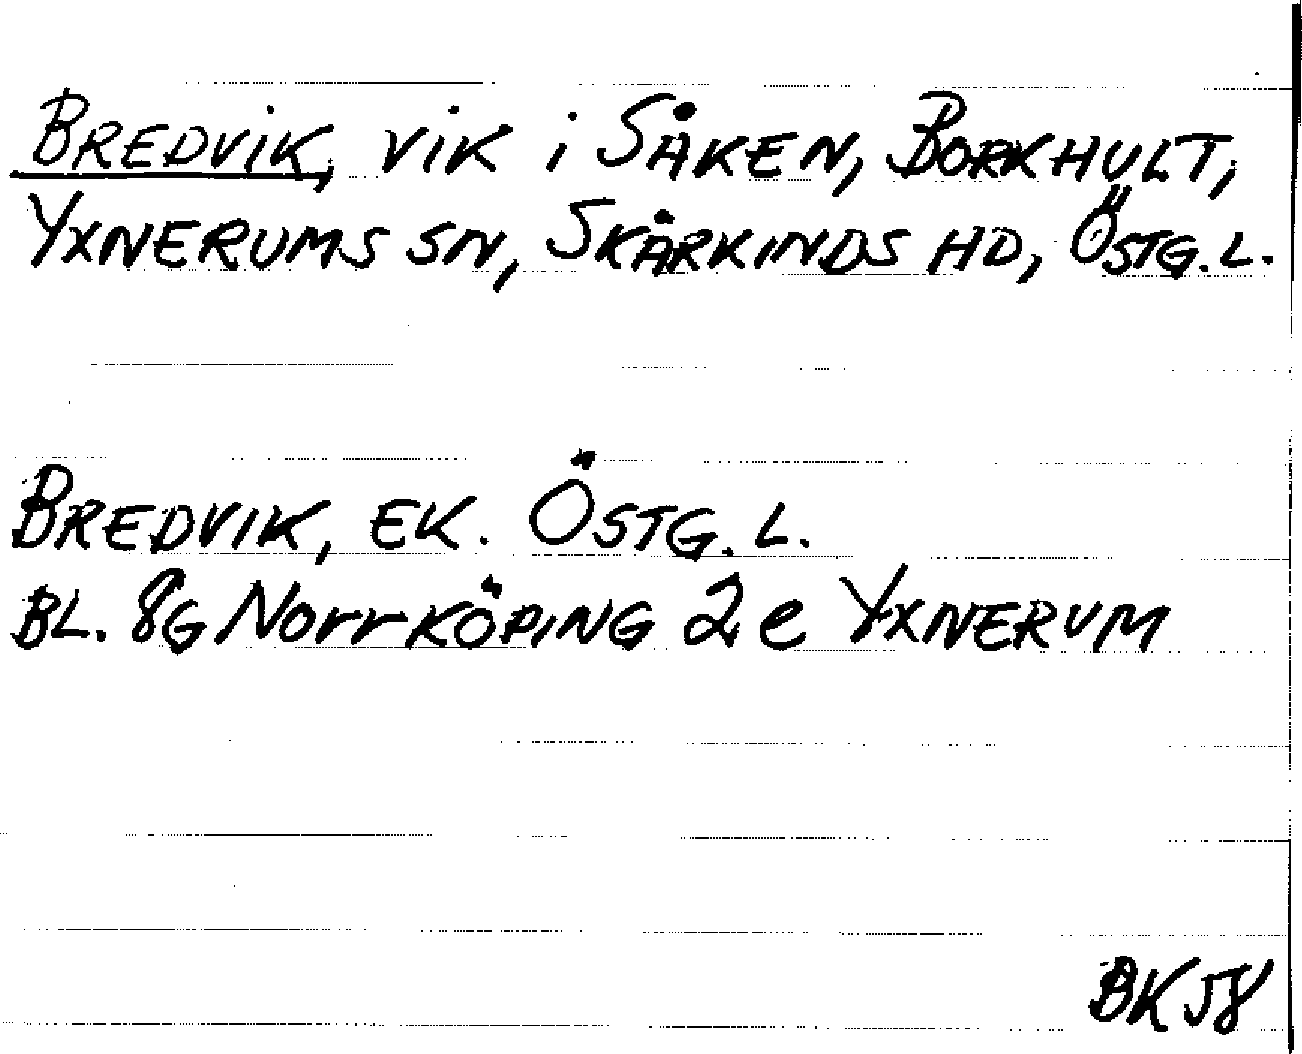 BREDVIK, VIK i SÅKEN, BORKHULT,
YXNERUMS SN, SKÄRKINDS HD, ÖSTG. L.
BREDVIK, EK. ÖSTG. L.
BL. 8G NORRKÖPING 2e YXNERUM
BK 58